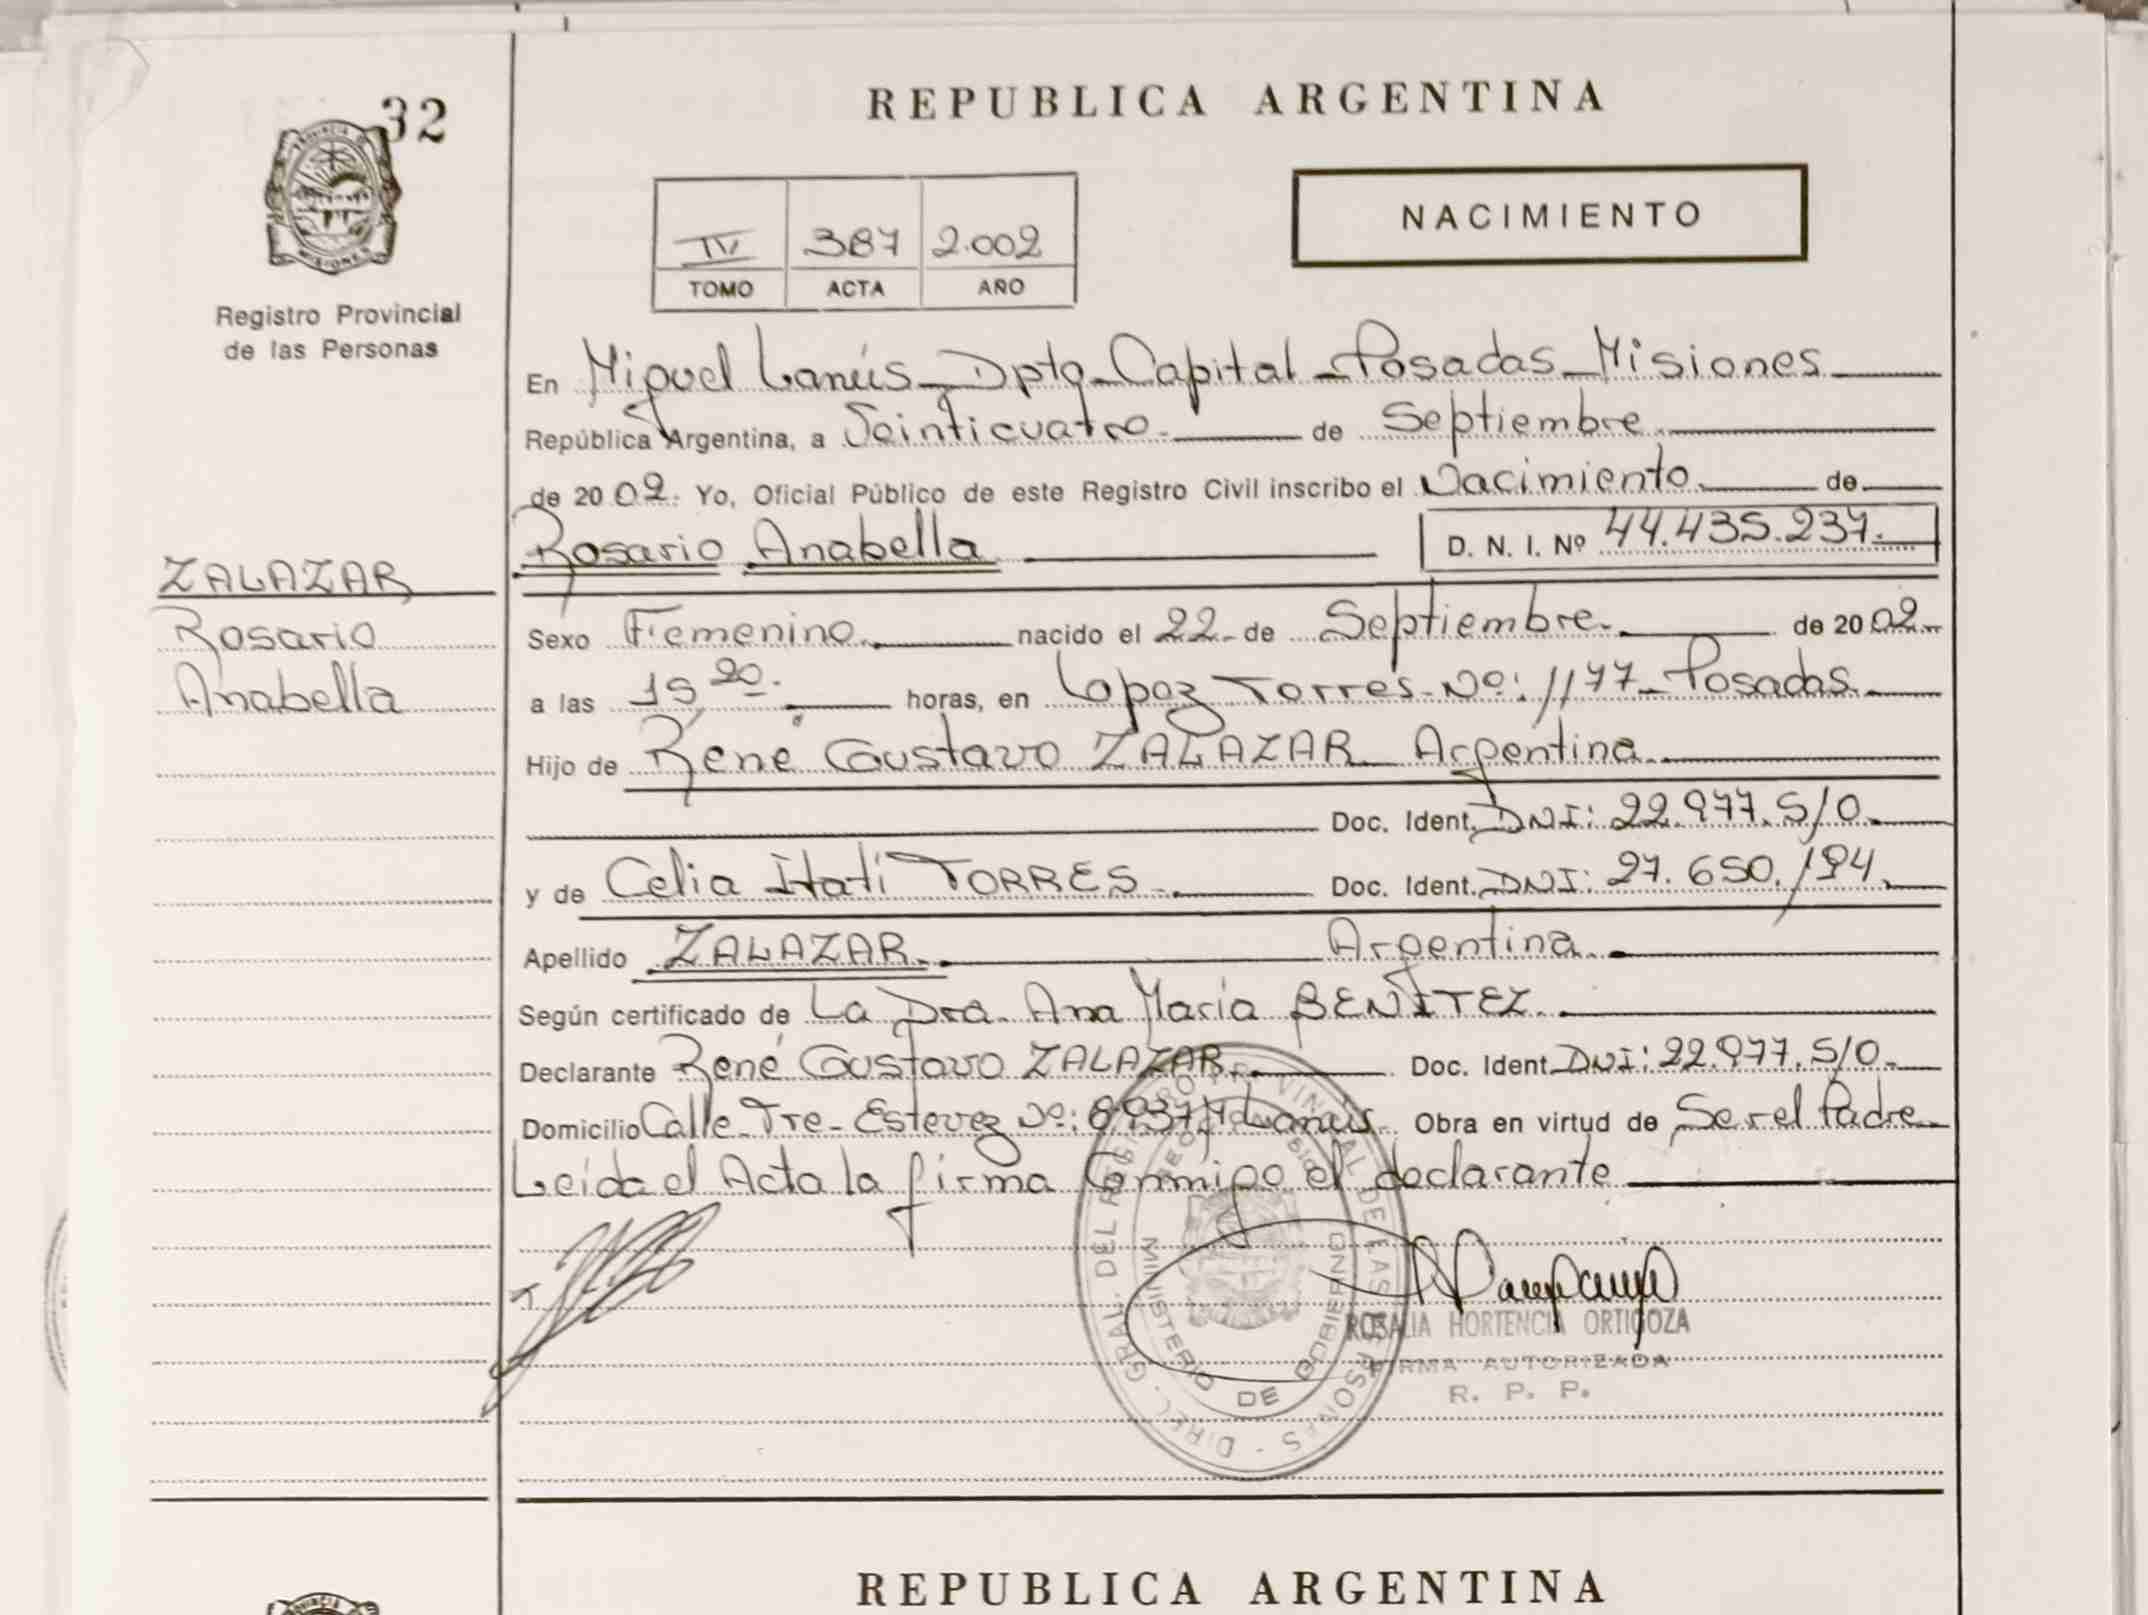 32
PROVINCIA DE
MISIONES
Registro Provincial
de las Personas
ZALAZAR
Rosario
Anabella
REPUBLICA ARGENTINA
IV 387 2.002
TOMO ACTA AÑO
NACIMIENTO
En Miguel Lanús - Dpto - Capital - Posadas - Misiones
República Argentina, a Veinticuatro de Septiembre
de 2002. Yo, Oficial Público de este Registro Civil inscribo el Nacimiento de
Rosario Anabella D. N. I. Nº 44.435.237.
Sexo Femenino nacido el 22 de Septiembre de 2002
a las 15 20 horas, en Lopez Torres Nº: 1177 - Posadas
Hijo de René Gustavo ZALAZAR Argentina
Doc. Ident. DNI: 22.977.510
y de Celia Itatí TORRES Doc. Ident. DNI: 27.650.194
Apellido ZALAZAR Argentina
Según certificado de La Dra. Ana María BENITEZ
Declarante René Gustavo ZALAZAR Doc. Ident. DNI: 22.977.510
Domicilio Calle Tte. Estevez Nº: 8937 M. Lanús Obra en virtud de Ser el Padre
Leída el Acta la firma Conmigo el declarante
DIREC. GRAL. DEL REGISTRO PROVINCIAL DE LAS PERSONAS
MINISTERIO DE GOBIERNO
ROSALIA HORTENCIA ORTIGOZA
FIRMA AUTORIZADA
R. P. P.
REPUBLICA ARGENTINA